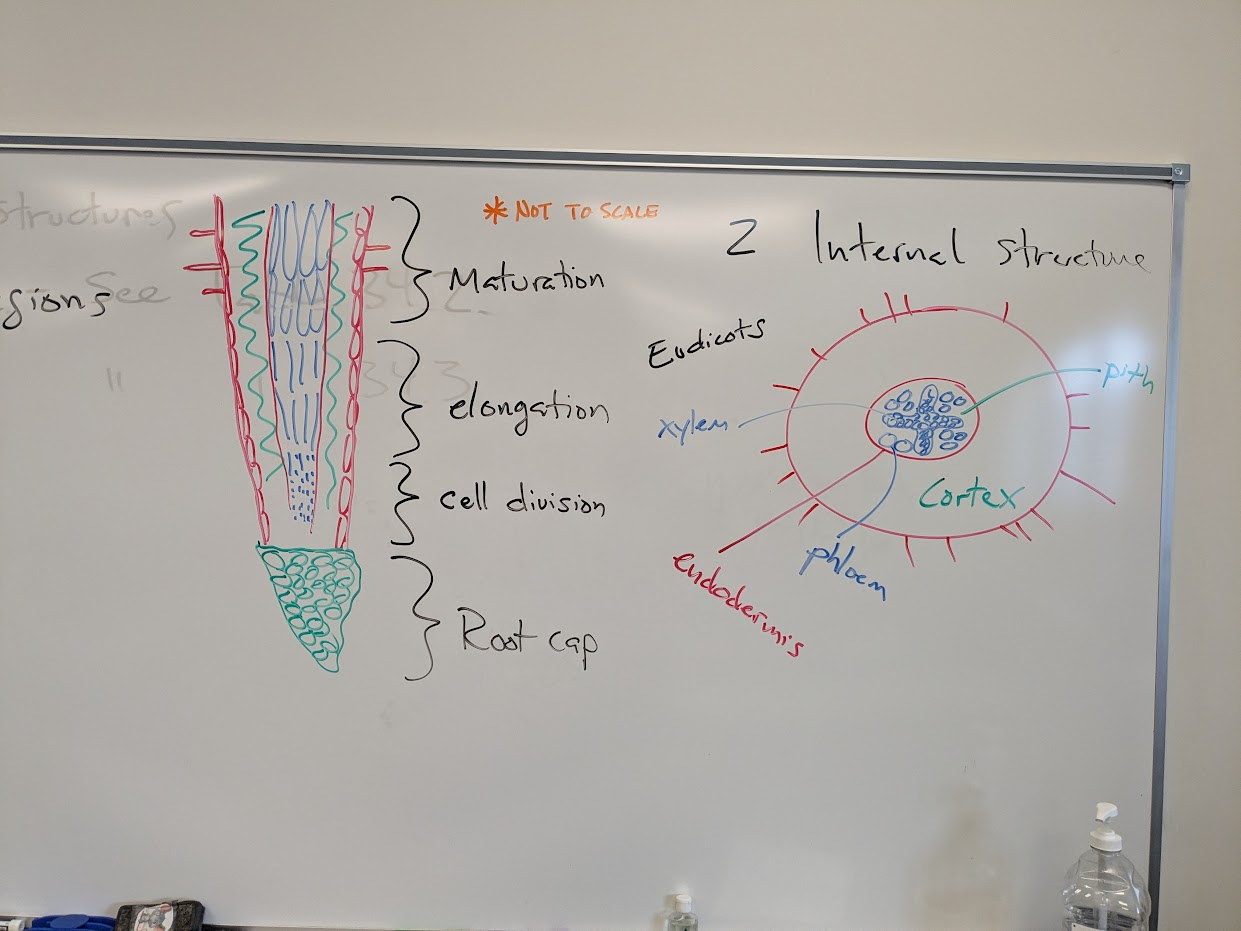 structures
gions See
"
* NOT TO SCALE
Maturation
elongation
cell division
Root cap
2 Internal Structure
Eudicots
xylem
pith
Cortex
phloem
endodermis